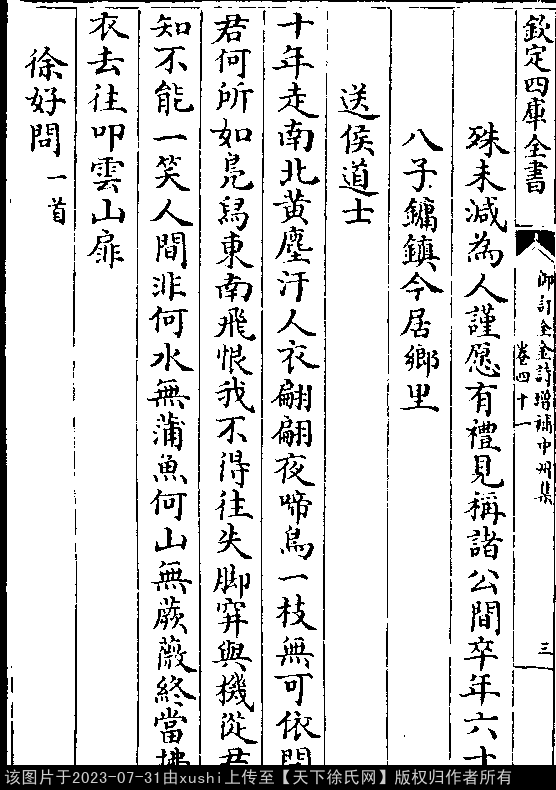 欽定四庫全書
御訂全金詩增補中州集
卷四十一
三
殊未減為人謹愿有禮見稱諸公間卒年六十
八子鏞鎮今居鄉里
送侯道士
十年走南北黃塵汙人衣翩翩夜啼烏一枝無可依問
君何所如鳧舄東南飛恨我不得往失脚穽與機從君
知不能一笑人間非何水無蒲魚何山無蕨薇終當拂
衣去往叩雲山扉
徐好問一首
该图片于2023-07-31由xushi上传至【天下徐氏网】版权归作者所有